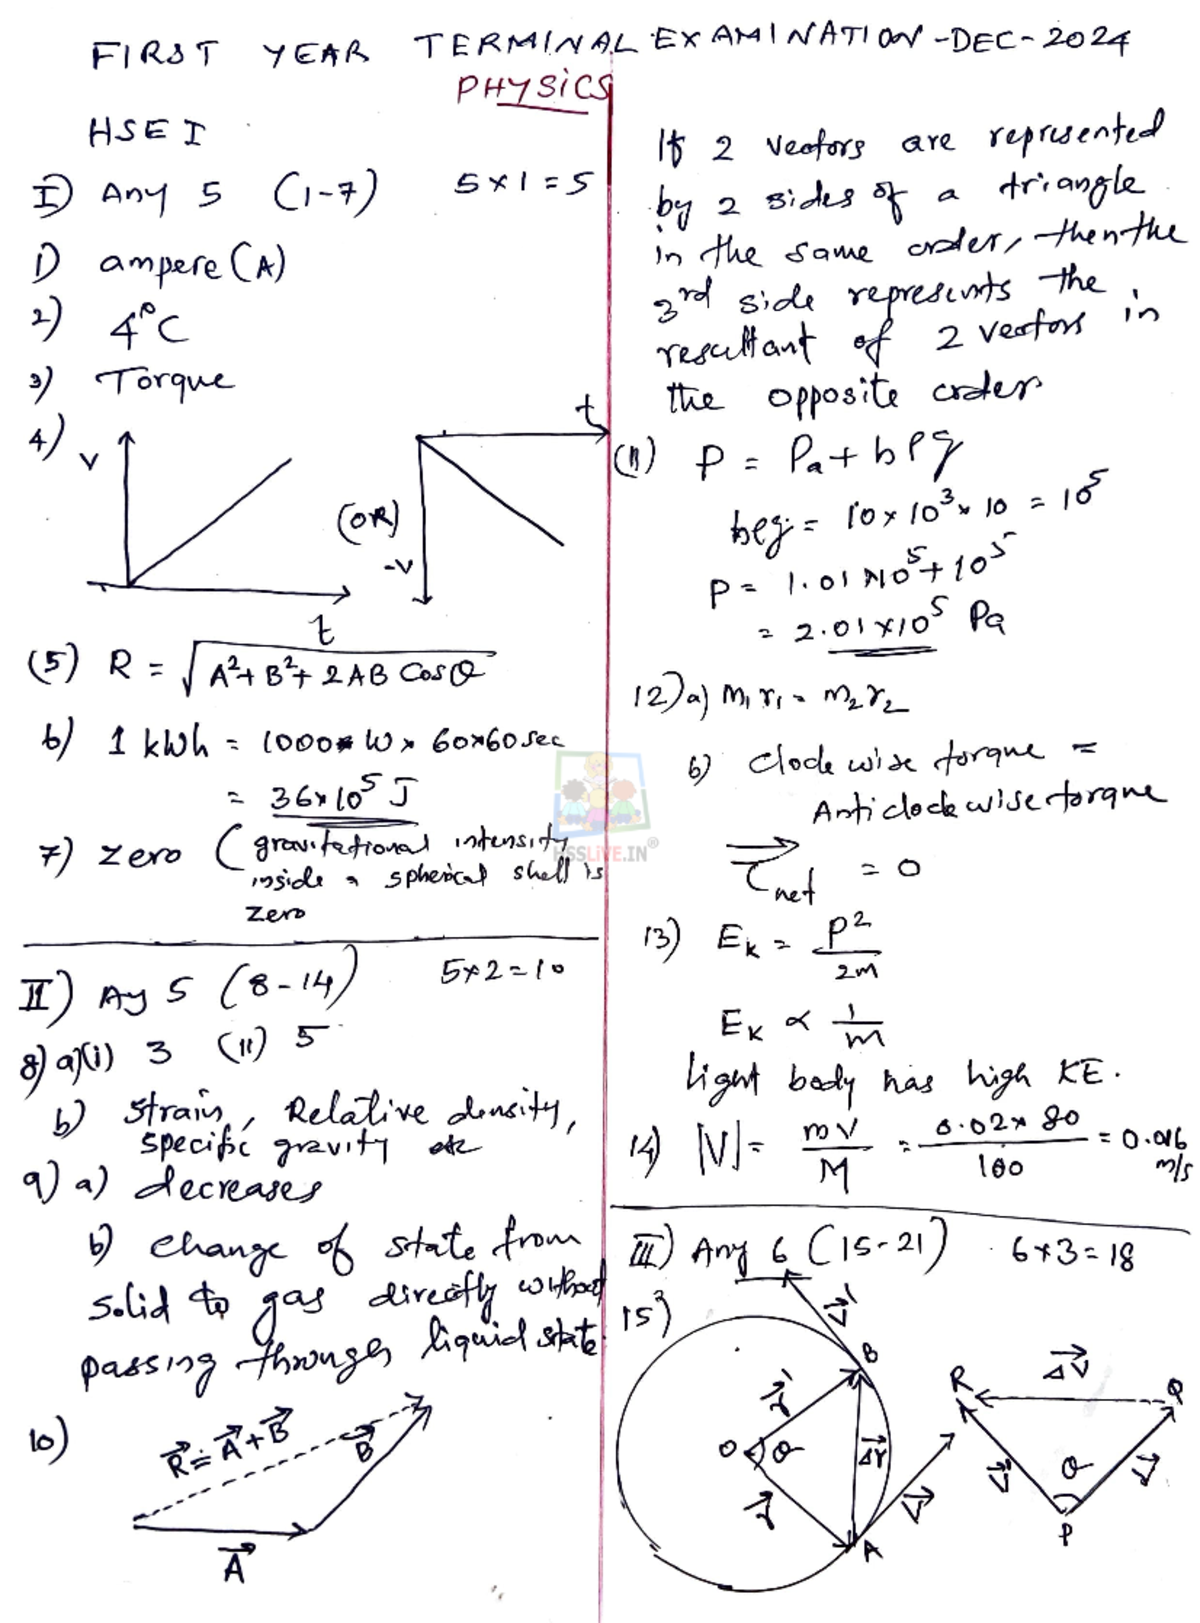 FIRST YEAR TERMINAL EXAMINATION-DEC-2024
PHYSICS
HSE I
I) Any 5 (1-7) 5×1=5
1) ampere (A)
2) 4°C
3) Torque
4) V
t
(OR)
t
-V
(5) R = √A²+B²+2AB Cosθ
6) 1 kWh = 1000 W × 60×60 sec
= 36×10⁵ J
7) zero (gravitational intensity
inside a spherical shell is
zero
II) Ay 5 (8-14) 5×2=10
8) a)(i) 3 (ii) 5
b) strain, Relative density,
specific gravity etc
9) a) decreases
b) change of state from
solid to gas directly without
passing through liquid state
10) R⃗=A⃗+B⃗
B⃗
A⃗
If 2 vectors are represented
by 2 sides of a triangle
in the same order, then the
3rd side represents the
resultant of 2 vectors in
the opposite order
(11) P = Pa + hρg
hρg = 10×10³×10 = 10⁵
P = 1.01×10⁵+10⁵
= 2.01×10⁵ Pa
12) a) m₁r₁ = m₂r₂
b) Clockwise torque =
Anticlockwise torque
τ⃗net = 0
13) Ek = P²/2m
Ek ∝ 1/m
Light body has high KE.
14) |V| = mv/M = 0.02×80/100 = 0.016 m/s
III) Any 6 (15-21) 6×3=18
15)
V⃗'
B
r⃗'
O θ
Δr⃗
r⃗
A
V⃗
R
ΔV⃗
Q
V⃗'
θ
V⃗
P
HSSLIVE.IN®